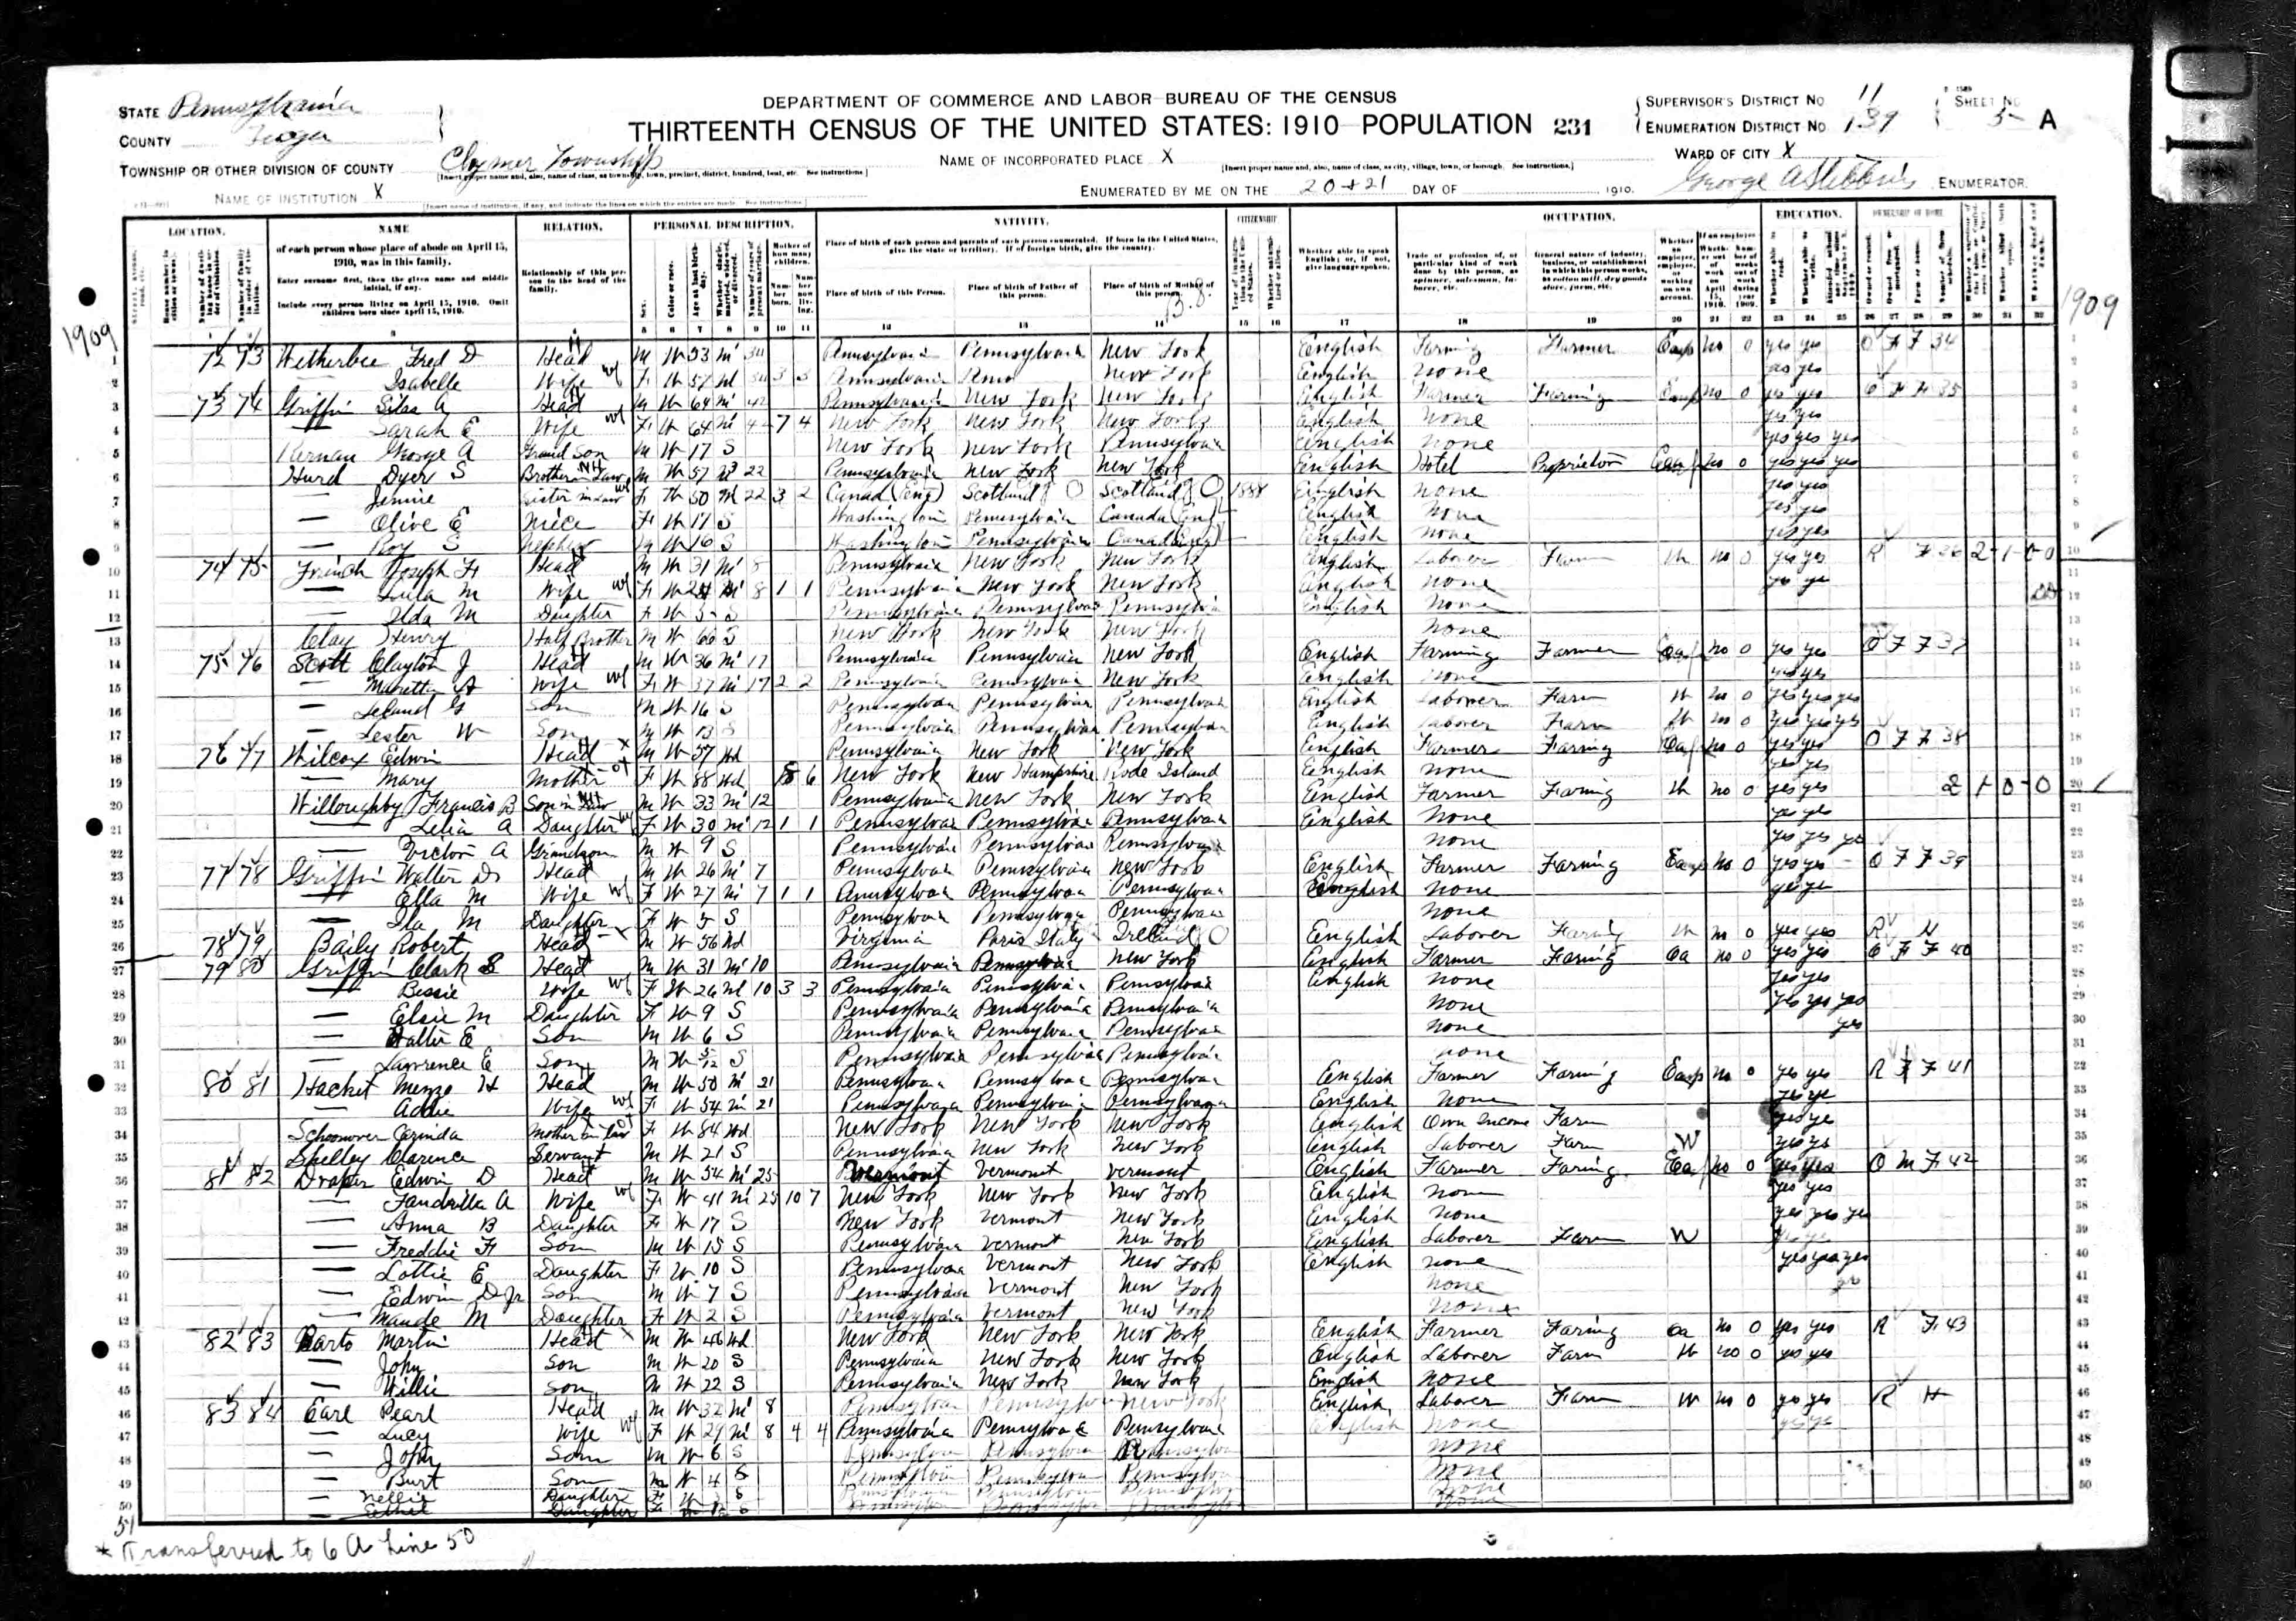 STATE Pennsylvania
COUNTY Tioga
TOWNSHIP OR OTHER DIVISION OF COUNTY Clymer Township
NAME OF INSTITUTION X
DEPARTMENT OF COMMERCE AND LABOR—BUREAU OF THE CENSUS
THIRTEENTH CENSUS OF THE UNITED STATES: 1910—POPULATION 231
NAME OF INCORPORATED PLACE X
ENUMERATED BY ME ON THE 20+21 DAY OF 1910.
SUPERVISOR'S DISTRICT NO 11
ENUMERATION DISTRICT NO 139
SHEET NO 5 A
WARD OF CITY X
George A Stebbins ENUMERATOR.
LOCATION. NAME RELATION. PERSONAL DESCRIPTION. NATIVITY. CITIZENSHIP OCCUPATION. EDUCATION. OWNERSHIP OF HOME
of each person whose place of abode on April 15, 1910, was in this family.
Enter surname first, then the given name and middle initial, if any.
Include every person living on April 15, 1910. Omit children born since April 15, 1910.
Relationship of this person to the head of the family.
Place of birth of each person and parents of each person enumerated. If born in the United States, give the state or territory. If of foreign birth, give the country.
Place of birth of this Person. Place of birth of Father of this person. Place of birth of Mother of this person.
1909 1909
1 72 73 Wetherbee Fred D Head M W 53 M 34 Pennsylvania Pennsylvania New York English Farming Farmer Emp no 0 yes yes O F F 34
2 — Isabelle Wife F W 57 M 34 3 3 Pennsylvania Penna New York English None yes yes
3 73 74 Griffin Silas A Head M W 64 M 42 Pennsylvania New York New York English Farmer Farming Emp no 0 yes yes O F F 35
4 — Sarah E Wife F W 64 M 42 7 4 New York New York New York English None yes yes
5 George A Grand Son M W 17 S New York New York Pennsylvania English None yes yes yes
6 Hurd Dyer S Brother in Law M W 57 M 22 Pennsylvania New York New York English Hotel Proprietor no 0 yes yes yes
7 — Jennie Sister in Law F W 50 M 22 3 2 Canad (Eng) Scotland Scotland 1888 English None yes yes
8 — Olive E Niece F W 17 S Washington Pennsylvania Canada (Eng) English None yes yes
9 — Roy S Nephew M W 16 S Washington Pennsylvania Canada (Eng) English None yes yes
10 74 75 French Joseph F Head M W 31 M 8 Pennsylvania New York New York English Laborer Farm W no 0 yes yes R F 36 2-1-0-0
11 — Lula M Wife F W 24 M 8 1 1 Pennsylvania New York New York English None yes yes
12 — Ilda M Daughter F W 5 S Pennsylvania Pennsylvania Pennsylvania English None
13 Clay Henry Half Brother M W 60 S New York New York New York None
14 75 76 Scott Clayton J Head M W 36 M 17 Pennsylvania Pennsylvania New York English Farming Farmer no 0 yes yes O F F 37
15 — Maretta A Wife F W 37 M 17 2 2 Pennsylvania Pennsylvania New York English None yes yes
16 — Leland G Son M W 16 S Pennsylvania Pennsylvania Pennsylvania English Laborer Farm W no 0 yes yes yes
17 — Lester W Son M W 13 S Pennsylvania Pennsylvania Pennsylvania English Laborer Farm W no 0 yes yes yes
18 76 77 Wilcox Edwin Head M W 57 Wd Pennsylvania New York New York English Farmer Faring no 0 yes yes O F F 38
19 — Mary Mother F W 88 Wd 8 6 New York New Hampshire Rode Island English None yes yes
20 Willoughby Francis B Son in Law M W 33 M 12 Pennsylvania New York New York English Farmer Faring W no 0 yes yes 2 1-0-0
21 — Lelia A Daughter F W 30 M 12 1 1 Pennsylvania Pennsylvania Pennsylvania English None yes yes
22 — Victor A Grandson M W 9 S Pennsylvania Pennsylvania Pennsylvania None yes yes yes
23 77 78 Griffin Walter D Head M W 26 M 7 Pennsylvania Pennsylvania New York English Farmer Faring Emp no 0 yes yes O F F 39
24 — Ella M Wife F W 27 M 7 1 1 Pennsylvania Pennsylvania Pennsylvania English None yes yes
25 — Ila M Daughter F W 5 S Pennsylvania Pennsylvania Pennsylvania None
26 78 79 Baily Robert Head M W 56 Wd Virginia Paris Italy Ireland English Laborer Faring W no 0 yes yes R H
27 79 80 Griffin Clark S Head M W 31 M 10 Pennsylvania Pennsylvania New York English Farmer Faring Oa no 0 yes yes O F F 40
28 — Bessie Wife F W 26 M 10 3 3 Pennsylvania Pennsylvania Pennsylvania English None yes yes
29 — Elsie M Daughter F W 9 S Pennsylvania Pennsylvania Pennsylvania None yes yes yes
30 — Walter E Son M W 6 S Pennsylvania Pennsylvania Pennsylvania None yes
31 — Lawrence E Son M W 5/12 S Pennsylvania Pennsylvania Pennsylvania None
32 80 81 Hacket Menzo H Head M W 50 M 21 Pennsylvania Pennsylvania Pennsylvania English Farmer Faring Emp no 0 yes yes R F F 41
33 — Addie Wife F W 54 M 21 Pennsylvania Pennsylvania Pennsylvania English None yes yes
34 Schoonover Corinda Mother in Law F W 84 Wd New York New York New York English Own Income Farm yes yes
35 Shelley Clarence Servant M W 21 S Pennsylvania New York New York English Laborer Farm W yes yes
36 81 82 Draper Edwin D Head M W 54 M 25 Vermont Vermont Vermont English Farmer Faring no 0 yes yes O M F 42
37 — Fandrilla A Wife F W 41 M 25 10 7 New York New York New York English None yes yes
38 — Anna B Daughter F W 17 S New York Vermont New York English None yes yes yes
39 — Freddie F Son M W 15 S Pennsylvania Vermont New York English Laborer Farm W yes yes
40 — Lottie E Daughter F W 10 S Pennsylvania Vermont New York English None yes yes yes
41 — Edwin D Jr Son M W 7 S Pennsylvania Vermont New York None
42 — Maude M Daughter F W 2 S Pennsylvania Vermont New York None
43 82 83 Barto Martin Head M W 46 Wd New York New York New York English Farmer Faring Oa no 0 yes yes R F 43
44 — John Son M W 20 S Pennsylvania New York New York English Laborer Farm W no 0 yes yes
45 — Willie Son M W 22 S Pennsylvania New York New York English None
46 83 84 Earl Pearl Head M W 32 M 8 Pennsylvania Pennsylvania New York English Laborer Farm W no 0 yes yes R H
47 — Lucy Wife F W 29 M 8 4 4 Pennsylvania Pennsylvania Pennsylvania English None yes yes
48 — John Son M W 6 S Pennsylvania Pennsylvania Pennsylvania None
49 — Burt Son M W 4 S Pennsylvania Pennsylvania Pennsylvania None
50 — Nellie Daughter F W S Pennsylvania Pennsylvania Pennsylvania None
51 — Ethel Daughter
* Transferred to 6 A Line 50